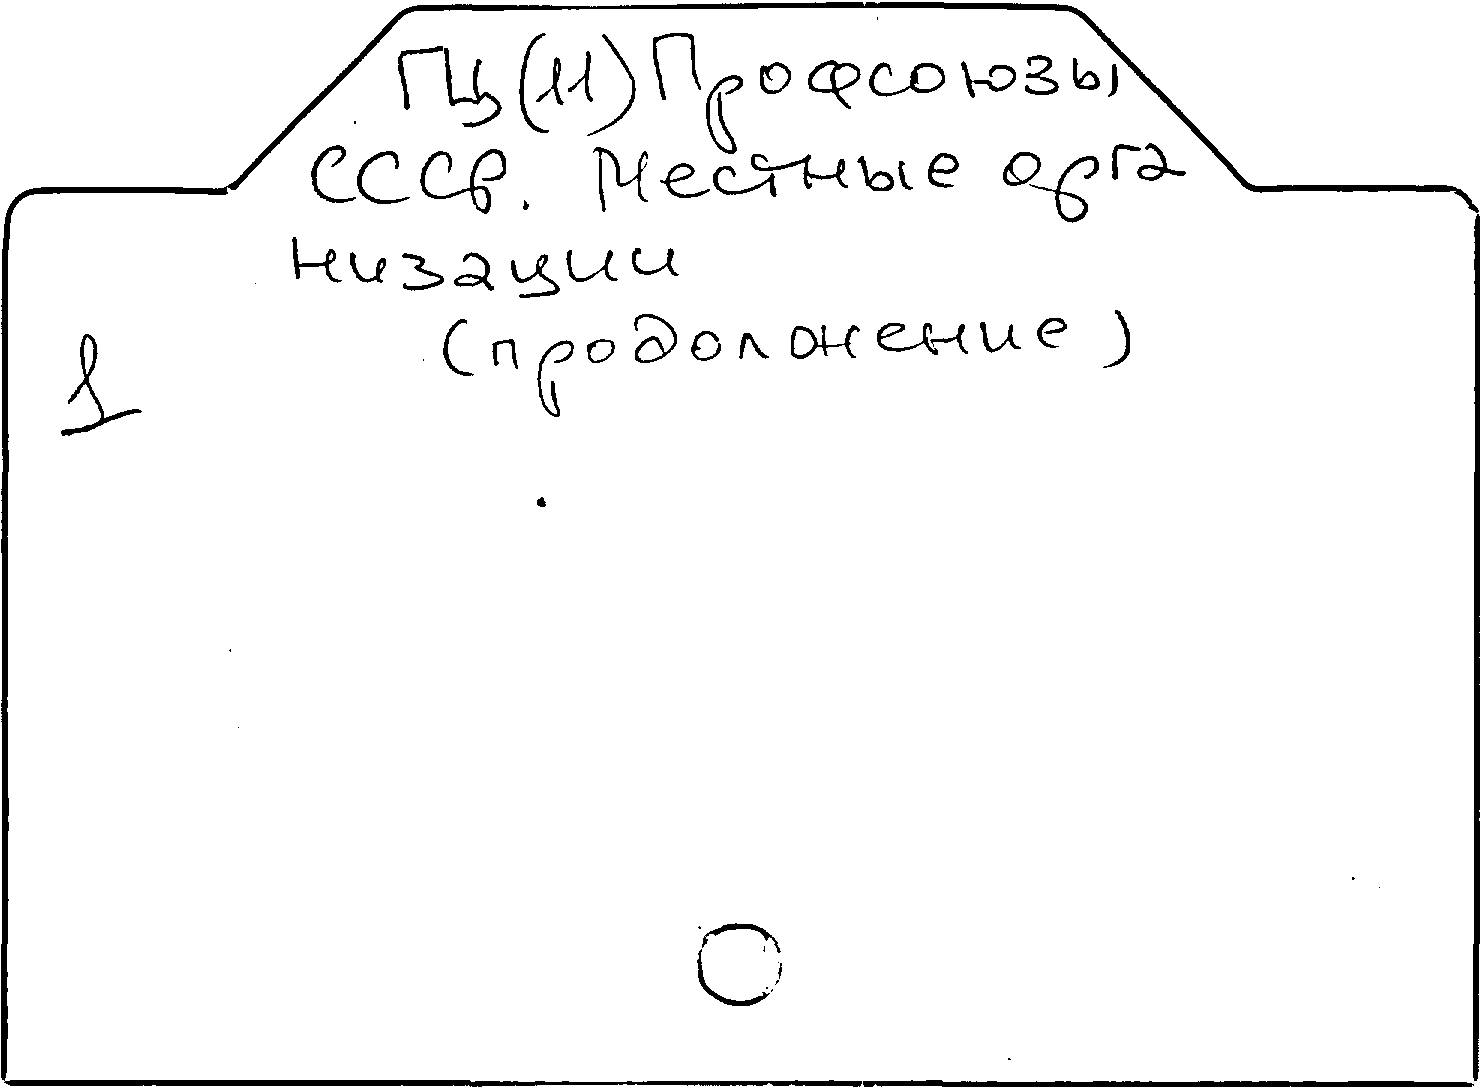 ГЦ(11) Профсоюзы
СССР. Местные орга
низации
(продолжение)
1